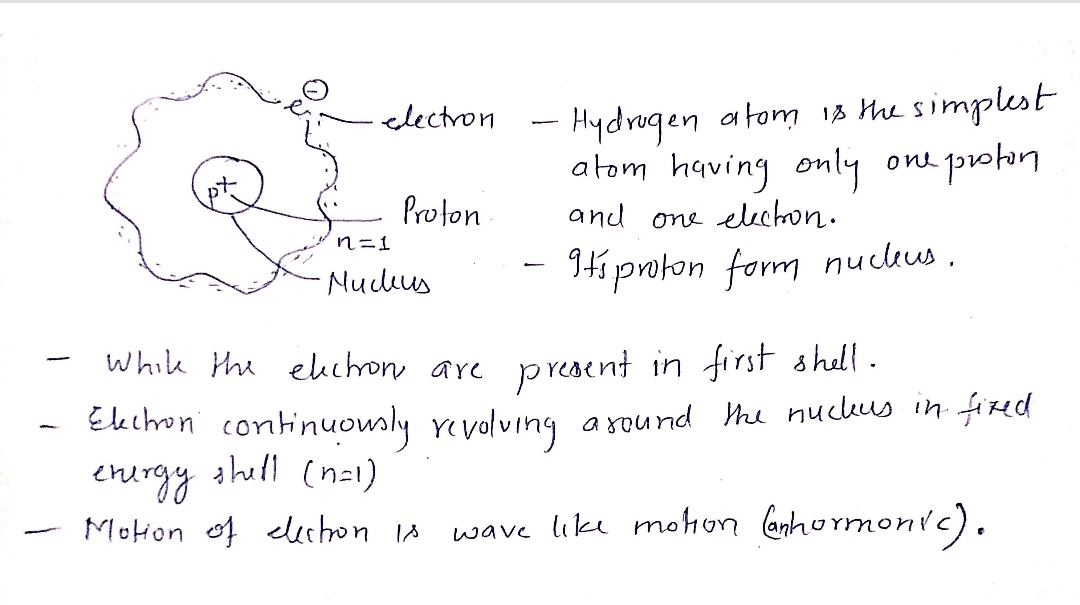 ⊖
e
electron
p+
Proton
n=1
Nucleus
– Hydrogen atom is the simplest
atom having only one proton
and one electron.
– It's proton form nucleus.
– While the electron are present in first shell.
– Electron continuously revolving around the nucleus in fixed
energy shell (n=1)
– Motion of electron is wave like motion (anhormonic).